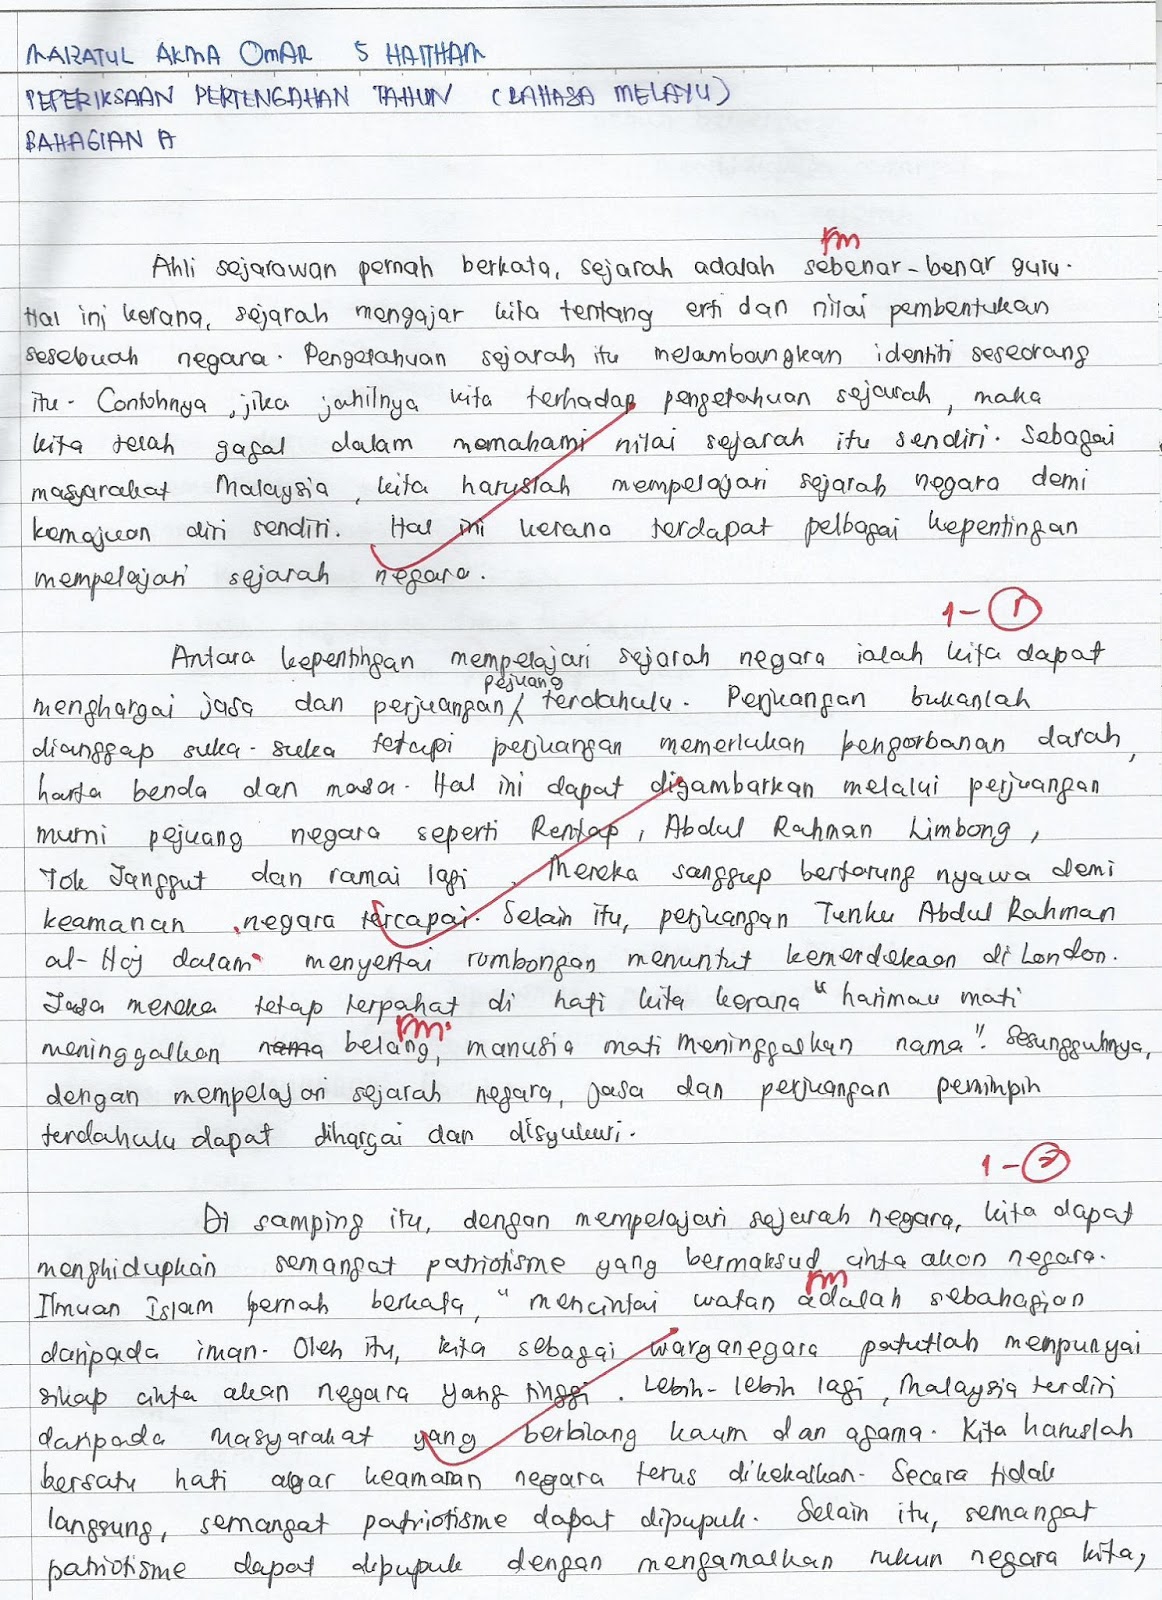 MAIZATUL AKMA OMAR 5 HAITHAM
PEPERIKSAAN PERTENGAHAN TAHUN (BAHASA MELAYU)
BAHAGIAN A
rm
Ahli sejarawan pernah berkata, sejarah adalah sebenar-benar guru.
Hal ini kerana, sejarah mengajar kita tentang erti dan nilai pembentukan
sesebuah negara. Pengetahuan sejarah itu melambangkan identiti seseorang
itu. Contohnya, jika jahilnya kita terhadap pengetahuan sejarah, maka
kita telah gagal dalam memahami nilai sejarah itu sendiri. Sebagai
masyarakat Malaysia, kita haruslah mempelajari sejarah negara demi
kemajuan diri sendiri. Hal ini kerana terdapat pelbagai kepentingan
mempelajari sejarah negara.
1-①
Antara kepentingan mempelajari sejarah negara ialah kita dapat
pejuang
menghargai jasa dan perjuangan / terdahulu. Perjuangan bukanlah
dianggap suka-suka tetapi perjuangan memerlukan pengorbanan darah,
harta benda dan masa. Hal ini dapat digambarkan melalui perjuangan
murni pejuang negara seperti Rentap, Abdul Rahman Limbong,
Tok Janggut dan ramai lagi. Mereka sanggup bertarung nyawa demi
keamanan negara tercapai. Selain itu, perjuangan Tunku Abdul Rahman
al-Haj dalam menyertai rombongan menuntut kemerdekaan di London.
Jasa mereka tetap terpahat di hati kita kerana "harimau mati
rm.
meninggalkan nama belang, manusia mati meninggalkan nama". Sesungguhnya,
dengan mempelajari sejarah negara, jasa dan perjuangan pemimpin
terdahulu dapat dihargai dan disyukuri.
1-②
Di samping itu, dengan mempelajari sejarah negara, kita dapat
menghidupkan semangat patriotisme yang bermaksud cinta akan negara.
rm
Ilmuan Islam pernah berkata, "mencintai watan adalah sebahagian
daripada iman. Oleh itu, kita sebagai warganegara patutlah mempunyai
sikap cinta akan negara yang tinggi. Lebih-lebih lagi, Malaysia terdiri
daripada masyarakat yang berbilang kaum dan agama. Kita haruslah
bersatu hati agar keamanan negara terus dikekalkan. Secara tidak
langsung, semangat patriotisme dapat dipupuk. Selain itu, semangat
patriotisme dapat dipupuk dengan mengamalkan rukun negara kita,